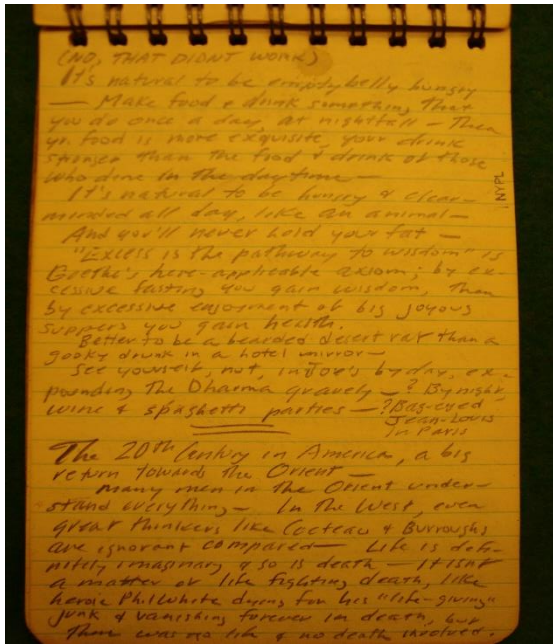 (NO, THAT DIDNT WORK)
It's natural to be emptybelly hungry
— Make food & drink something that
you do once a day, at nightfall — Then
yr. food is more exquisite, your drink
stronger than the food & drink of those
who dine in the daytime —
It's natural to be hungry & clear-
minded all day, like an animal —
And you'll never hold your fat —
"Excess is the pathway to wisdom" is
Goethe's here-applicable axiom; by ex-
cessive fasting you gain wisdom, then
by excessive enjoyment of big joyous
suppers you gain health.
Better to be a bearded desert rat than a
gooky drunk in a hotel mirror —
See yourself, nut, in Joe's by day, ex-
pounding The Dharma gravely — ? By night,
wine & spaghetti parties — ? Bag-eyed
Jean-Louis
in Paris
The 20th Century in America, a big
return towards the Orient —
Many men in the Orient under-
stand everything — In the West, even
great thinkers like Cocteau & Burroughs
are ignorant compared — Life is defi-
nitely imaginary & so is death — It isnt
a matter of life fighting death, like
heroic Phil White dying for his "life-giving"
junk & vanishing forever in death, but
There was no life & no death involved.
NYPL